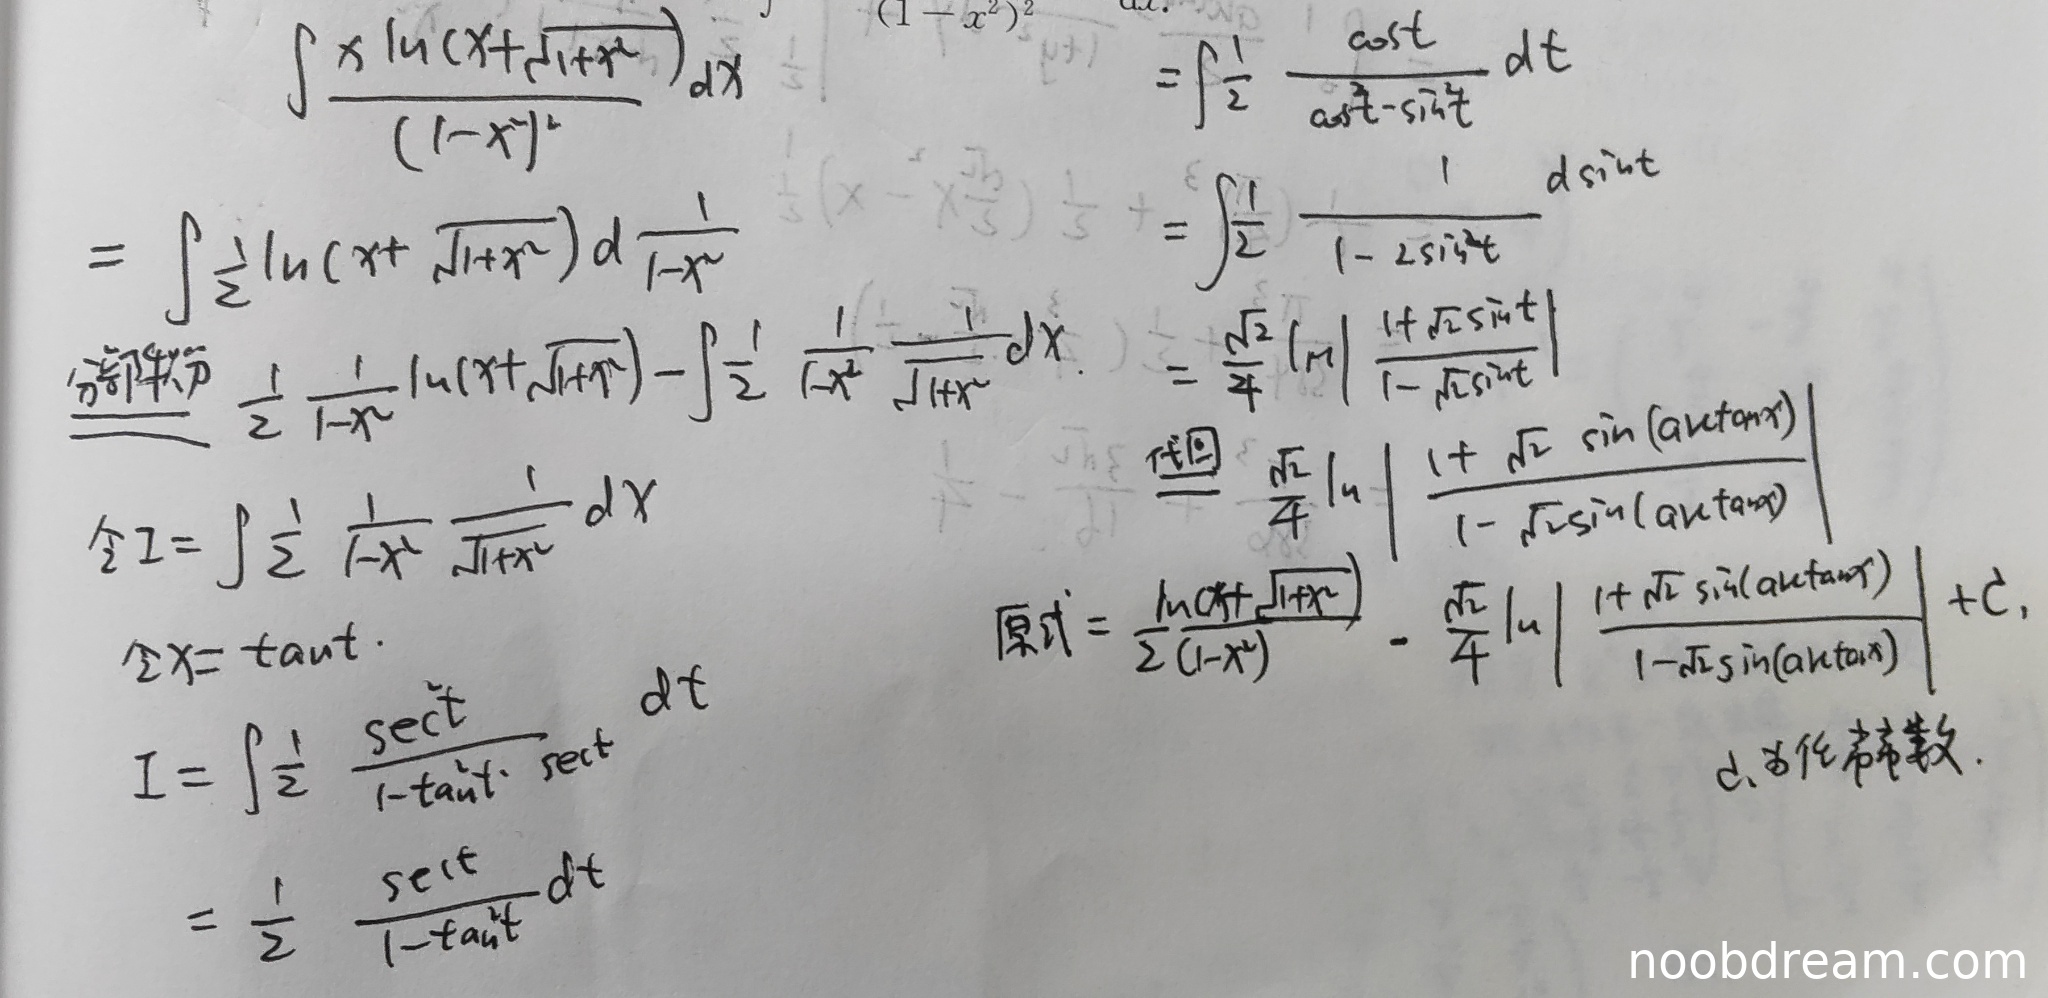 (1 − x²)² dx.
∫ x ln(x+√(1+x²)) / (1−x²)² dx
= ∫ 1/2 ln(x+√(1+x²)) d 1/(1−x²)
分部积分 1/2 1/(1−x²) ln(x+√(1+x²)) − ∫ 1/2 1/(1−x²) 1/√(1+x²) dx.
令I = ∫ 1/2 1/(1−x²) 1/√(1+x²) dx
令x = tant.
I = ∫ 1/2 sec²t / (1−tan²t)·sect dt
= 1/2 sect / (1−tan²t) dt
= ∫ 1/2 cost / (cos²t−sin²t) dt
= ∫ 1/2 1 / (1−2sin²t) dsint
= √2/4 ln| (1+√2sint) / (1−√2sint) |
代回 √2/4 ln| (1+√2 sin(arctanx)) / (1−√2sin(arctanx)) |
原式 = ln(x+√(1+x²)) / 2(1−x²) − √2/4 ln| (1+√2 sin(arctanx)) / (1−√2sin(arctanx)) | +C,
C为任常数.
noobdream.com